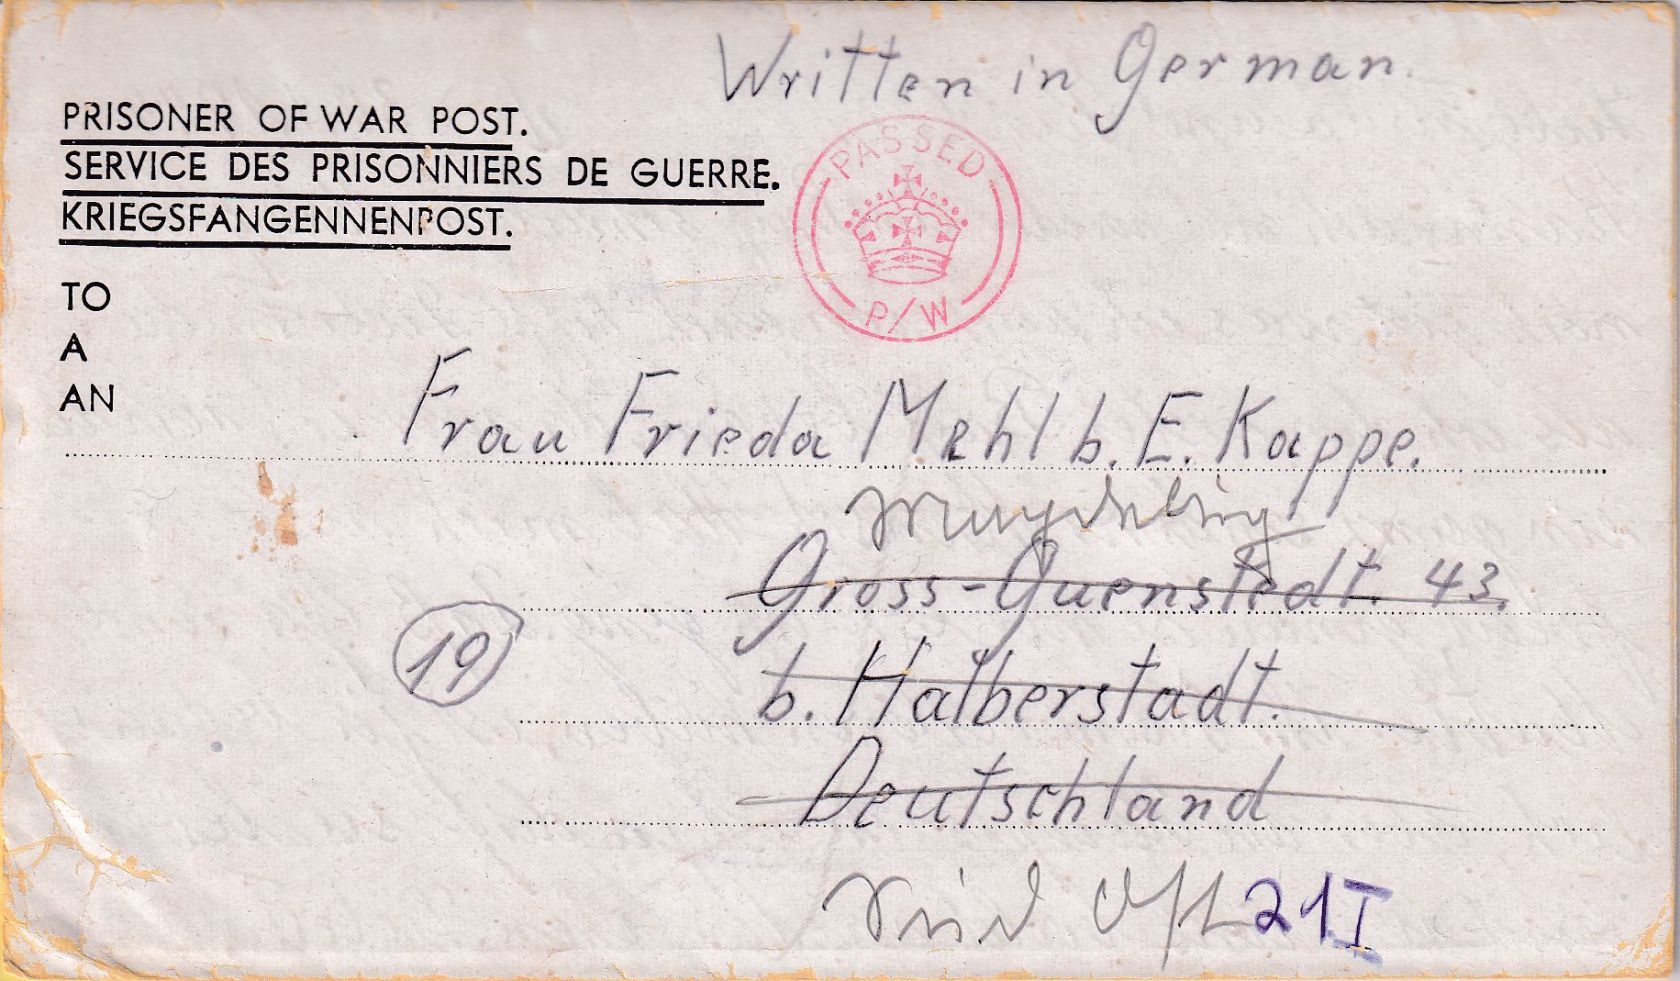 Written in German.
PRISONER OF WAR POST.
SERVICE DES PRISONNIERS DE GUERRE.
KRIEGSFANGENNENPOST.
PASSED
P/W
TO
A
AN
Frau Frieda Mehl b. E. Kappe.
Magdeburg
Gross-Quenstedt. 43.
19
b. Halberstadt.
Deutschland
Süd 21 I